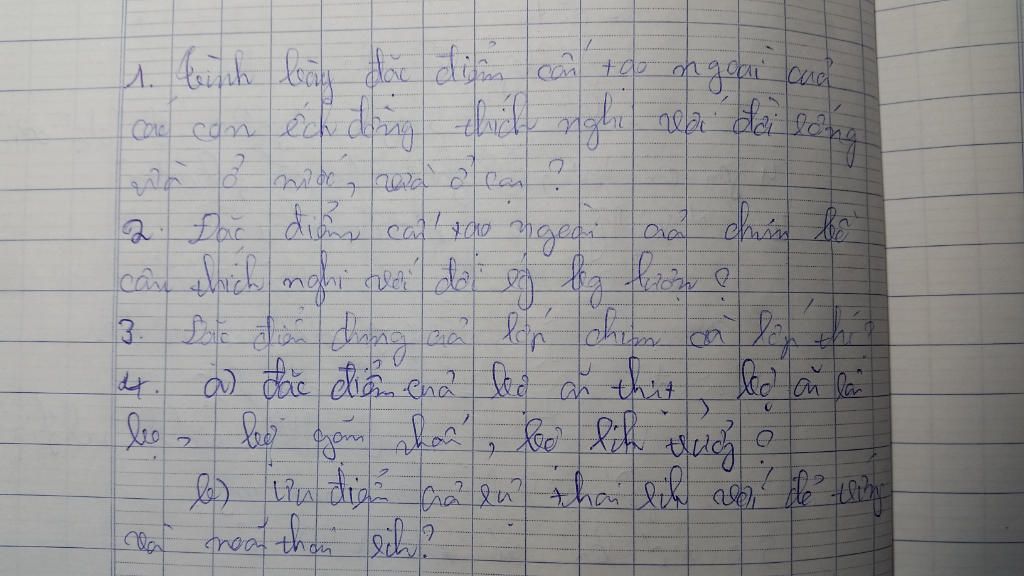 1. Trình bày đặc điểm cấu tạo ngoài của
các con ếch đồng thích nghi với đời sống
vừa ở nước, vừa ở cạn ?
2. Đặc điểm cấu tạo ngoài của chim bồ
câu thích nghi với đời sống bay lượn ?
3. Đặc điểm chung của lớp chim và lớp thú?
4. a) đặc điểm của bộ ăn thịt, bộ ăn sâu
bọ, bộ gặm nhấm, bộ linh trưởng ?
b) Ưu điểm của sự thai sinh với đẻ trứng
và noãn thai sinh?